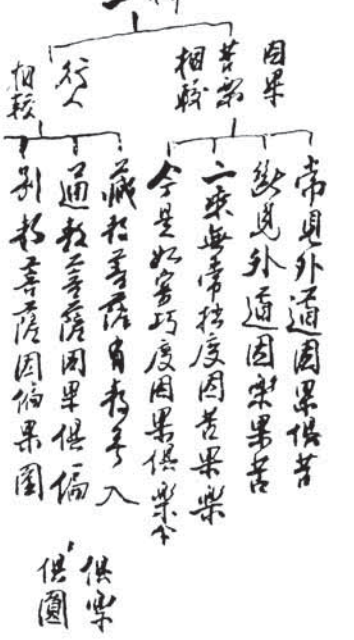 因果
苦樂
相較
常見外道因果俱苦
斷見外道因樂果苦
二乘無常拙度因苦果樂
今是如實巧度因果俱樂今
行人
相較
藏教菩薩有教無人
通教菩薩因果俱偏
別教菩薩因偏果圓
俱樂
俱圓